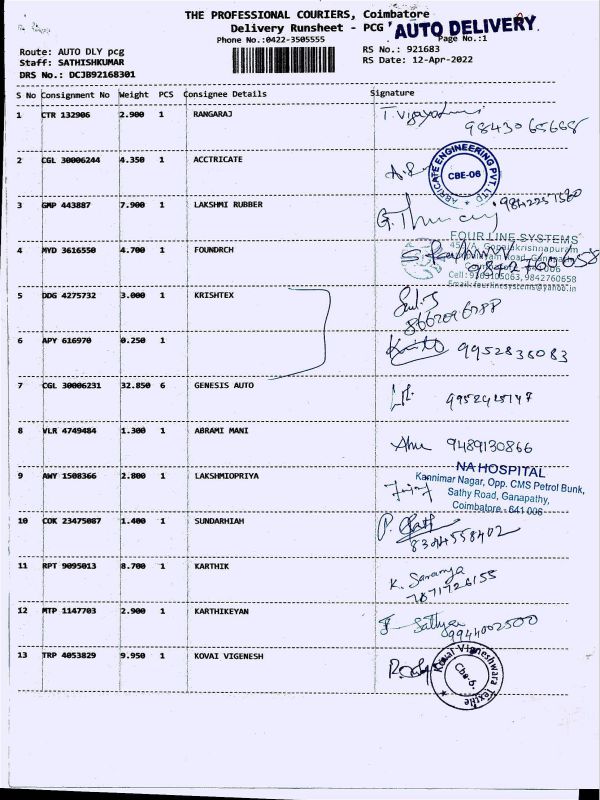 THE PROFESSIONAL COURIERS, Coimbatore
Delivery Runsheet - PCG
AUTO DELIVERY
Phone No.:0422-3505555
Page No.:1
Route: AUTO DLY pcg
RS No.: 921683
Staff: SATHISHKUMAR
RS Date: 12-Apr-2022
DRS No.: DCJB92168301
S No Consignment No Weight PCS Consignee Details Signature
1 CTR 132906 2.900 1 RANGARAJ
9843065668
2 CGL 30006244 4.350 1 ACCTRICATE
ABRICATE ENGINEERING PVT LTD
CBE-06
3 GMP 443887 7.900 1 LAKSHMI RUBBER
FOUR LINE SYSTEMS
4 MYD 3616550 4.700 1 FOUNDRCH
Cell: 9109105063, 9842760658
Email: fourlinesystems@yahoo.in
5 DDG 4275732 3.000 1 KRISHTEX
6 APY 616970 0.250 1
9952836083
7 CGL 30006231 32.850 6 GENESIS AUTO
8 VLR 4749484 1.300 1 ABRAMI MANI
9489130866
9 AWY 1508366 2.800 1 LAKSHMIOPRIYA
NA HOSPITAL
Kannimar Nagar, Opp. CMS Petrol Bunk,
Sathy Road, Ganapathy,
Coimbatore - 641 006
10 COK 23475087 1.400 1 SUNDARHIAH
8344558402
11 RPT 9095013 8.700 1 KARTHIK
K. Saranya
7871726155
12 MTP 1147703 2.900 1 KARTHIKEYAN
Sathya
9944002500
13 TRP 4053829 9.950 1 KOVAI VIGENESH
Kovai Vigneshwara Textile
Cbe-6.